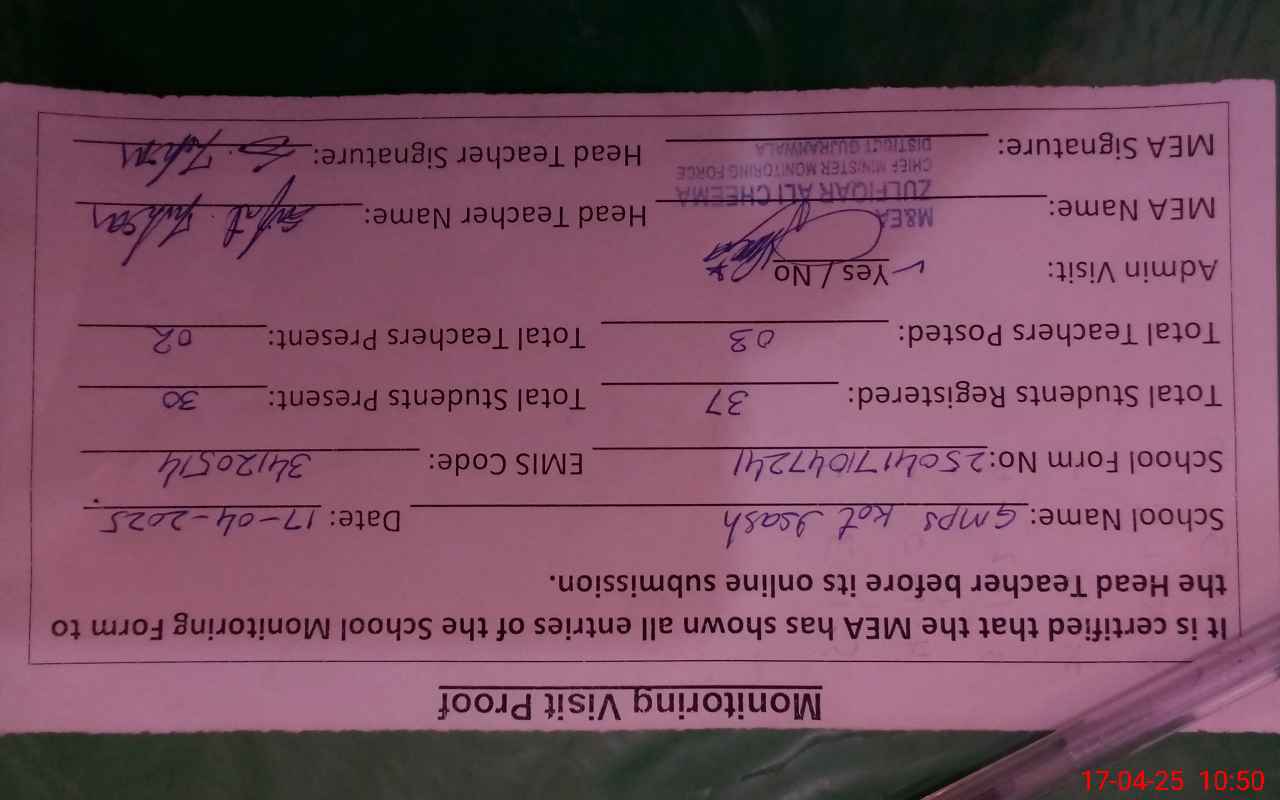 Monitoring Visit Proof
It is certified that the MEA has shown all entries of the School Monitoring Form to
the Head Teacher before its online submission.
School Name: GMPS Kot Date: 17-04-2025
School Form No: 250417104724 EMIS Code: 34120514
Total Students Registered: 37 Total Students Present: 30
Total Teachers Posted: 03 Total Teachers Present: 02
Admin Visit: Yes / No
MEA Name: Head Teacher Name:
M&EA
ZULFIQAR ALI CHEEMA
CHIEF MINISTER MONITORING FORCE
DISTRICT GUJRANWALA
MEA Signature: Head Teacher Signature:
17-04-25 10:50